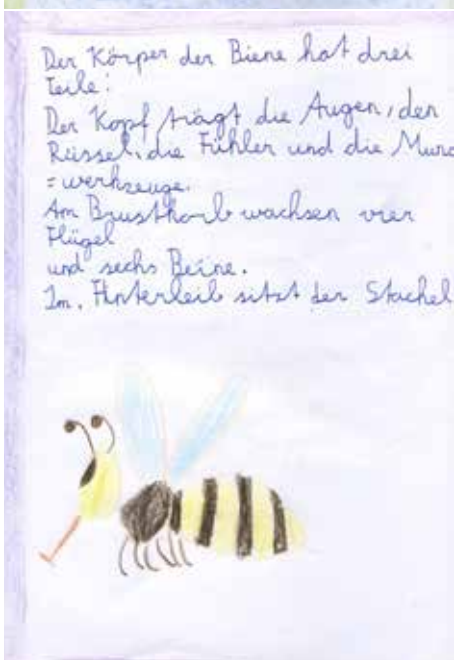 Der Körper der Biene hat drei
Teile:
Der Kopf trägt die Augen, den
Rüssel, die Fühler und die Mund
=werkzeuge.
Am Brustkorb wachsen vier
Flügel
und sechs Beine.
Im. Hinterleib sitzt der Stachel